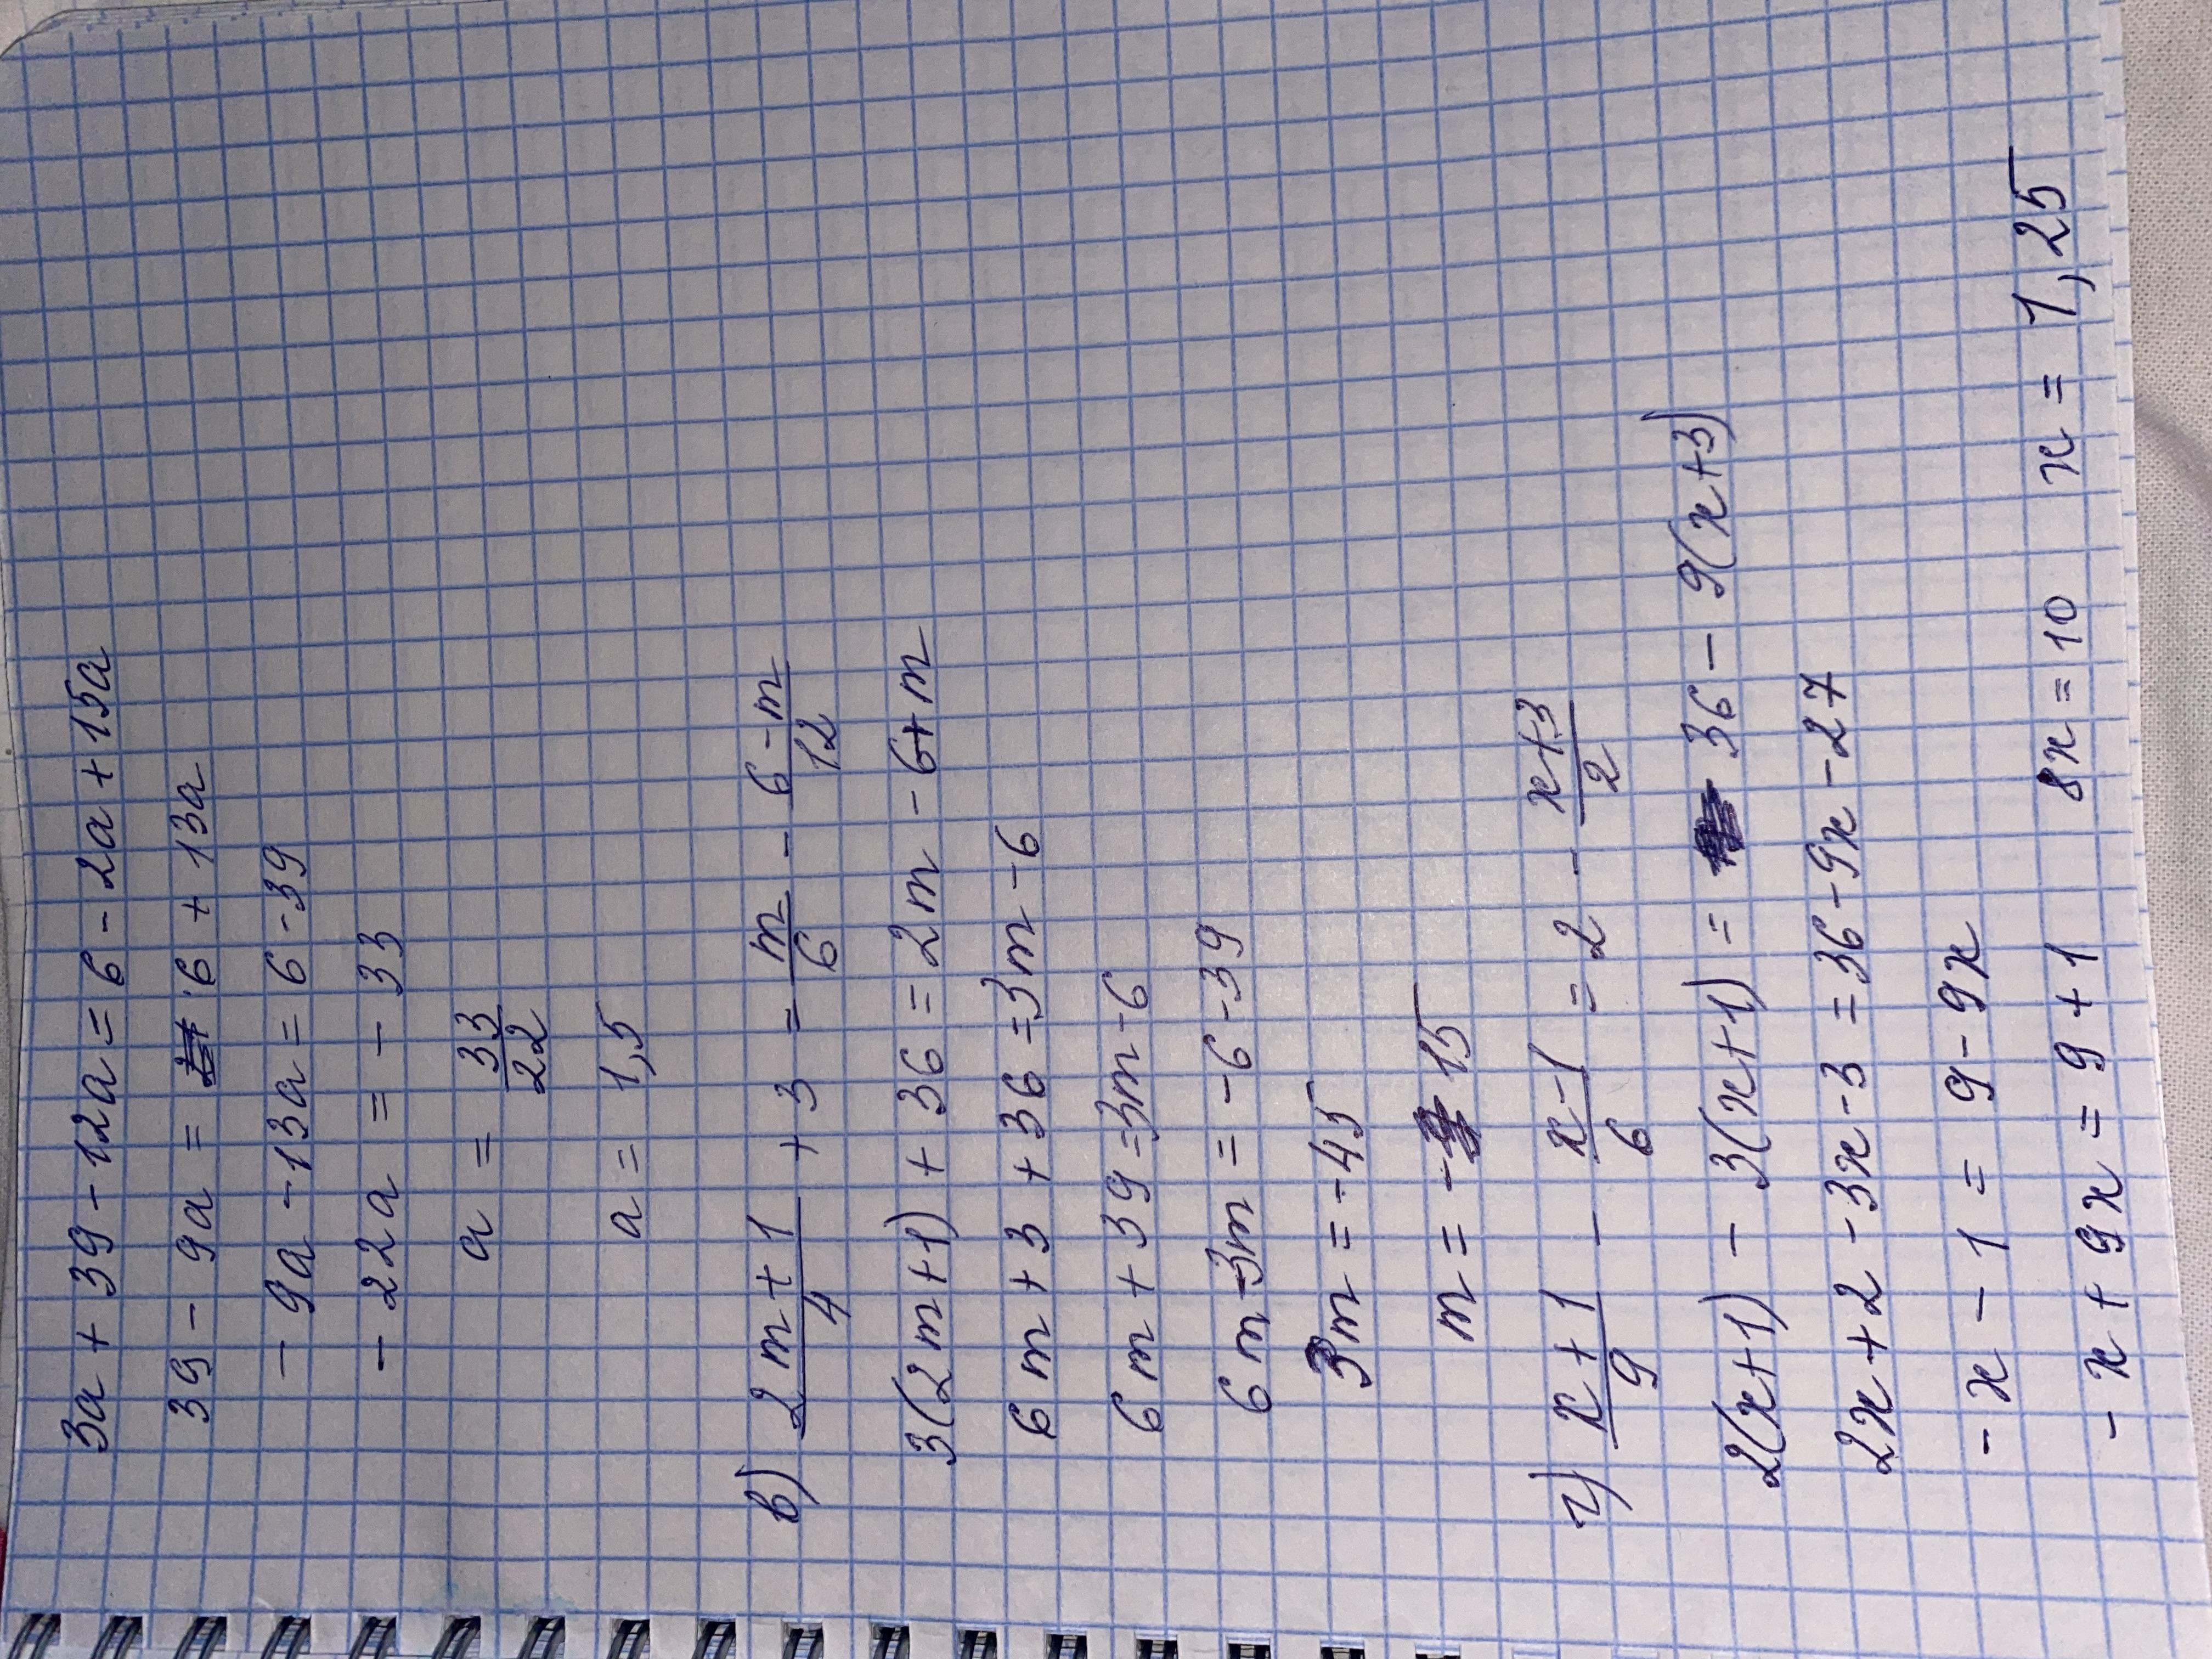 3a + 39 - 12a = 6 - 2a + 15a
39 - 9a = 6 + 13a
- 9a - 13a = 6 - 39
- 22a = - 33
a = 33/22
a = 1,5
в) (2m + 1)/4 + 3 = m/6 - (6 - m)/12
3(2m + 1) + 36 = 2m - 6 + m
6m + 3 + 36 = 3m - 6
6m + 39 = 3m - 6
6m - 3m = - 6 - 39
3m = - 45
m = - 15
г) (x + 1)/9 - (x - 1)/6 = 2 - (x + 3)/2
2(x + 1) - 3(x + 1) = 36 - 9(x + 3)
2x + 2 - 3x - 3 = 36 - 9x - 27
- x - 1 = 9 - 9x
- x + 9x = 9 + 1 8x = 10 x = 1,25